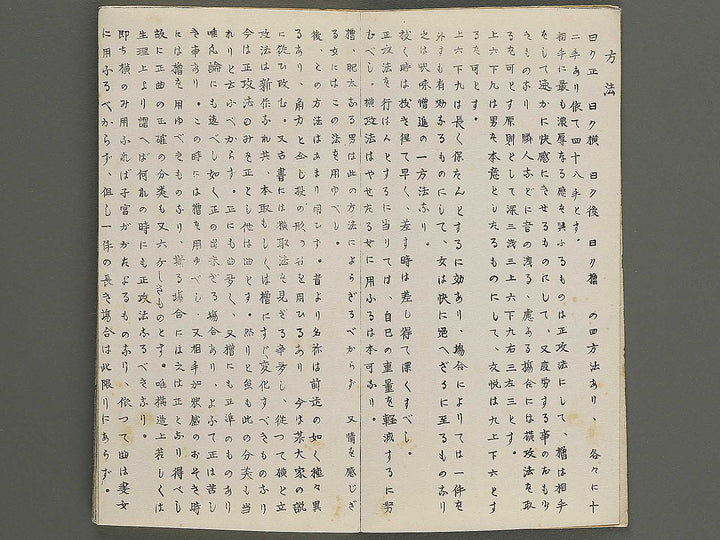 方法
曰ク正 曰ク横 曰ク後 曰ク櫓 の四方法あり、各々に十
二手あり依て四十八手とす。
相手に最も濃厚なる感を與ふるものは正攻法にして、櫓は相手
をして速かに快感にさせるものにして、又疲労する事のおも少
きものなり 隣人などに音の洩る、虞ある場合には横攻法を取
るを可とす原則として深三浅三上六下九右三左三とす。
上六下九は男を本意としたるものにして、女悦は九上下六とす
るを可とす。
上六下九は長く保たんとするに効あり、場合によりては一件を
外すも有効なるものにして、女は快に堪へざるに至るものなり
之は吸味増進の一方法なり。
抜く時は抜き程て早く、差す時は差し得て深くすべし。
正攻法を行はんとするに当りては、自己の重量を軽減するに努
むべし。横攻法はやせたる女に用ふるは本可なり。
櫓、肥太なる男は此の方法によらざるべからず 又情を感じざ
る女にはこの法を用ゆべし。
後、との方法はあまり用ひず。昔より名称は前述の如く種々異
るあり、角力と会し投の形の名を用ひるあり 今は某大家の説
に従ひ改む。又古書には横取法を見ざる事多し、従つて横と立
攻法は新作なれ共、本取もしくは櫓にすぐ変化すべきものなり
今は正攻法のみを正とし他は曲とす。然りと雖も此の分類も当
れりと云ふべからす。正にも曲多く、又櫓にも正準のものあり
唯気論にも述べし如く正の出来ざる場合あり、よふて正は苦し
き事あり。この時には櫓を用ゆべし、又相手が快感のおそき時
には櫓を用ゆべきものなり、斯る場合には之は正と云り得べし
故に正曲の正確の分類も又六ケしきものとす。唯構造上若しくは
生理上より謂へば何れの時にも正攻法なるべきなり。
即ち横のみ用ふれば子宮がかたよるものなり、依つて曲は妻女
に用ふるべからず、但し一件の長き場合は此限りにあらず。